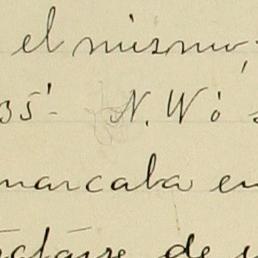 el mismo,
35'- N. W ó
marcaba en
tratarse de